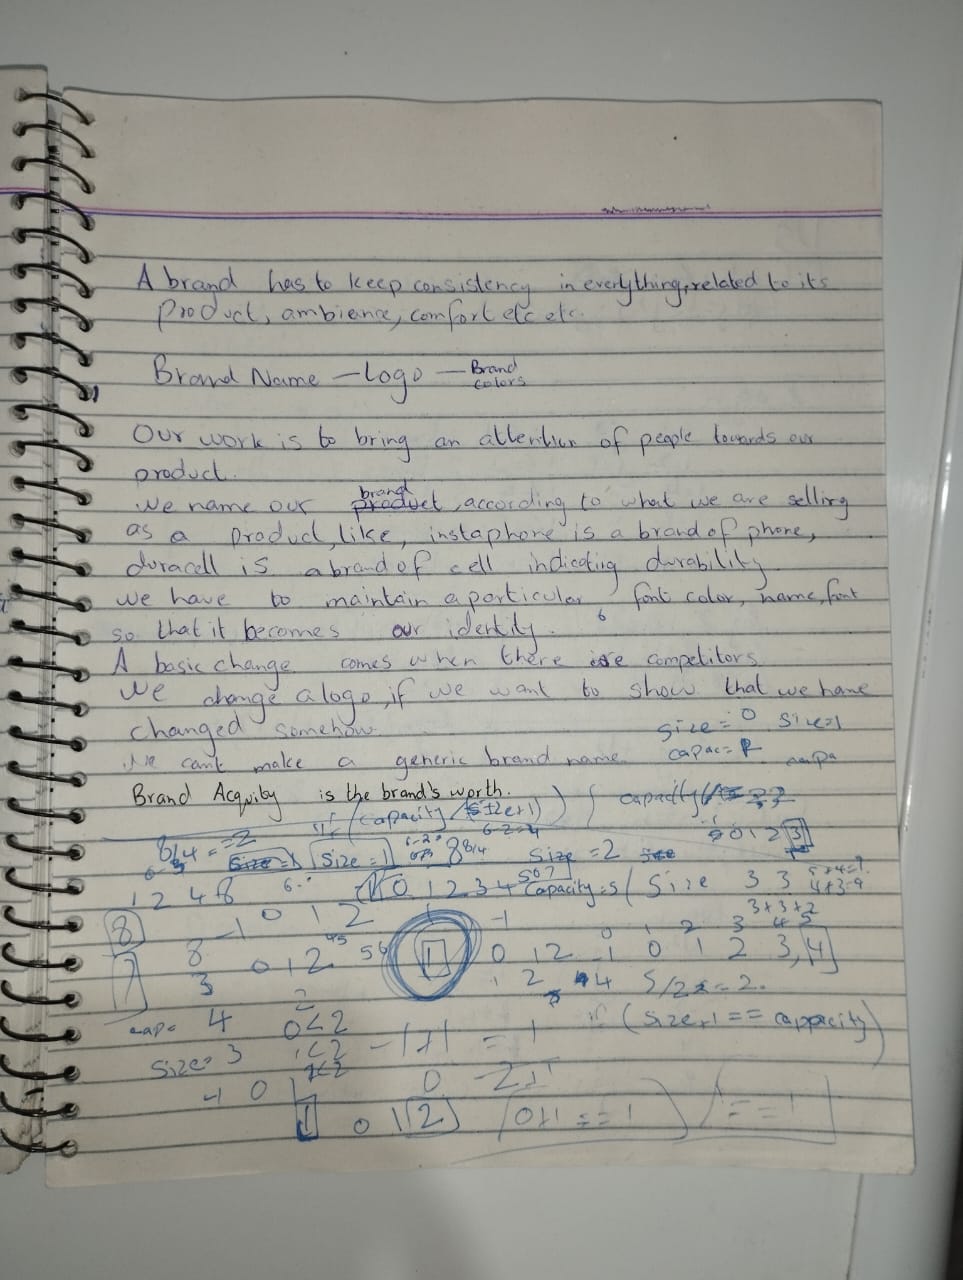 A brand has to keep consistency in everything, related to its
product, ambience, comfort etc etc.
Brand Name — Logo — Brand colors
Our work is to bring an attention of people towards our
product.
We name our brand product, according to what we are selling
as a product, like, instaphone is a brand of phone,
duracell is a brand of cell indicating durability
we have to maintain a particular font color, name, font
so that it becomes our identity.
6
A basic change comes when there are competitors
We change a logo, if we want to show that we have
changed somehow.
size = 0 size=1
We cant make a generic brand name
capac=
Brand Acquity is the brand's worth.
if (capacity / size+1)
capacity
6-2=4
0 1 2 3
8/4 = =2
Size = 1
8/4
Size = 2
1 2 4 8
6
0 1 2 3 4
Capacity = 5
Size 3 3
3+3+2
-1 0 1 2
-1
0 1 2 3 4 5
8
8
0 1 2
56
1
0 1 2 -1 0 1 2 3, 4
7
3
1 2 4
5/2 = 2.
cap= 4
2
0<2
if (size+1 == cappacity)
size= 3
1<2
-1+1 = 1
-1 0 1
0
1
0 1 2
0+1 == 1
== 1